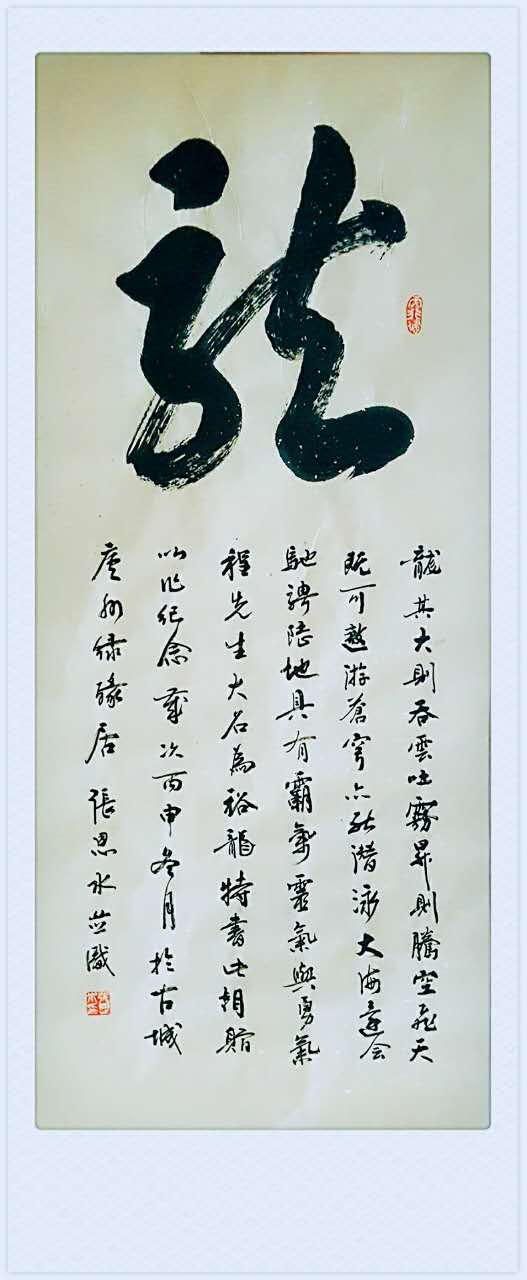 龍
龍其大則吞雲吐霧昇則騰空飛天
既可遨游蒼穹亦能潛泳大海還会
馳騁陸地具有霸氣靈氣與勇氣
程先生大名為裕龍特書此相贈
以作紀念歲次丙申冬月於古城
廬州綠緣居 張思水並識